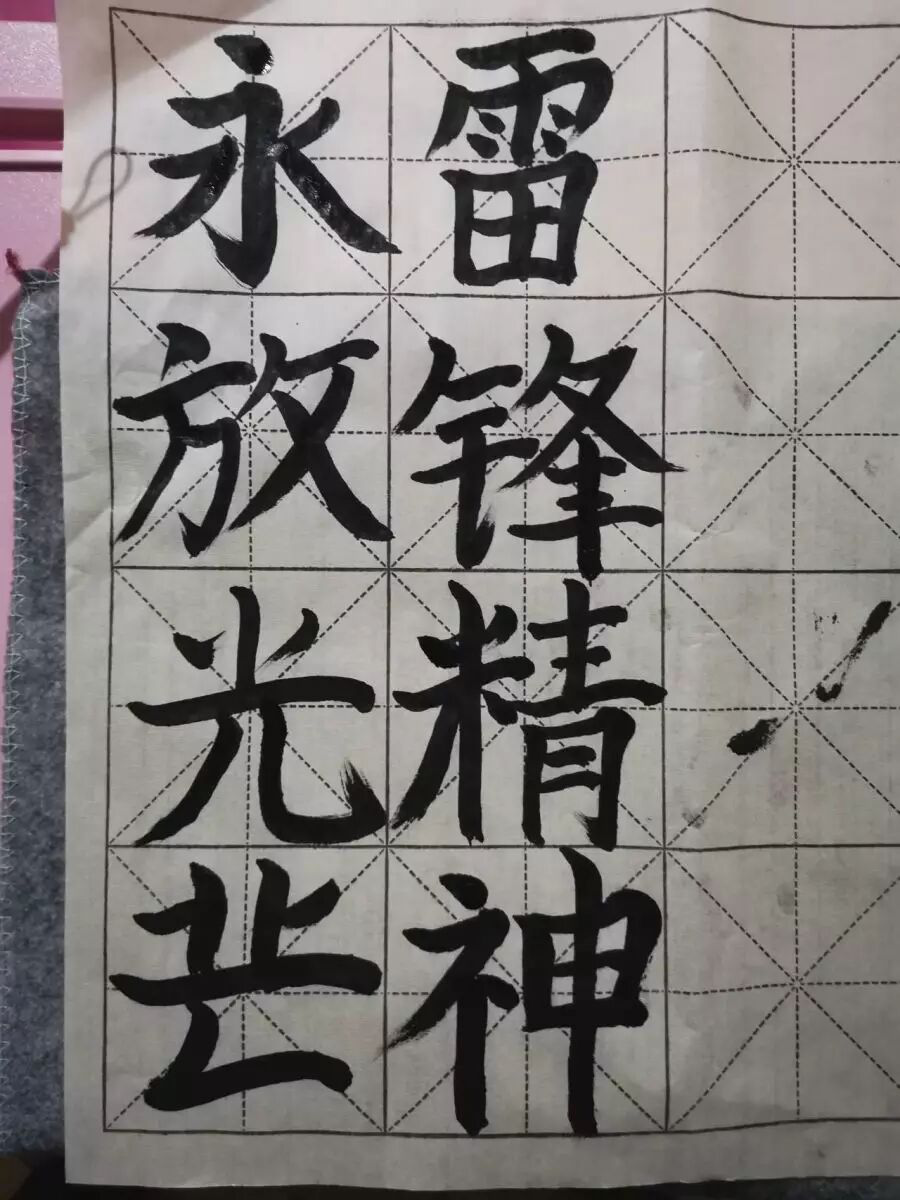 雷锋精神
永放光芒